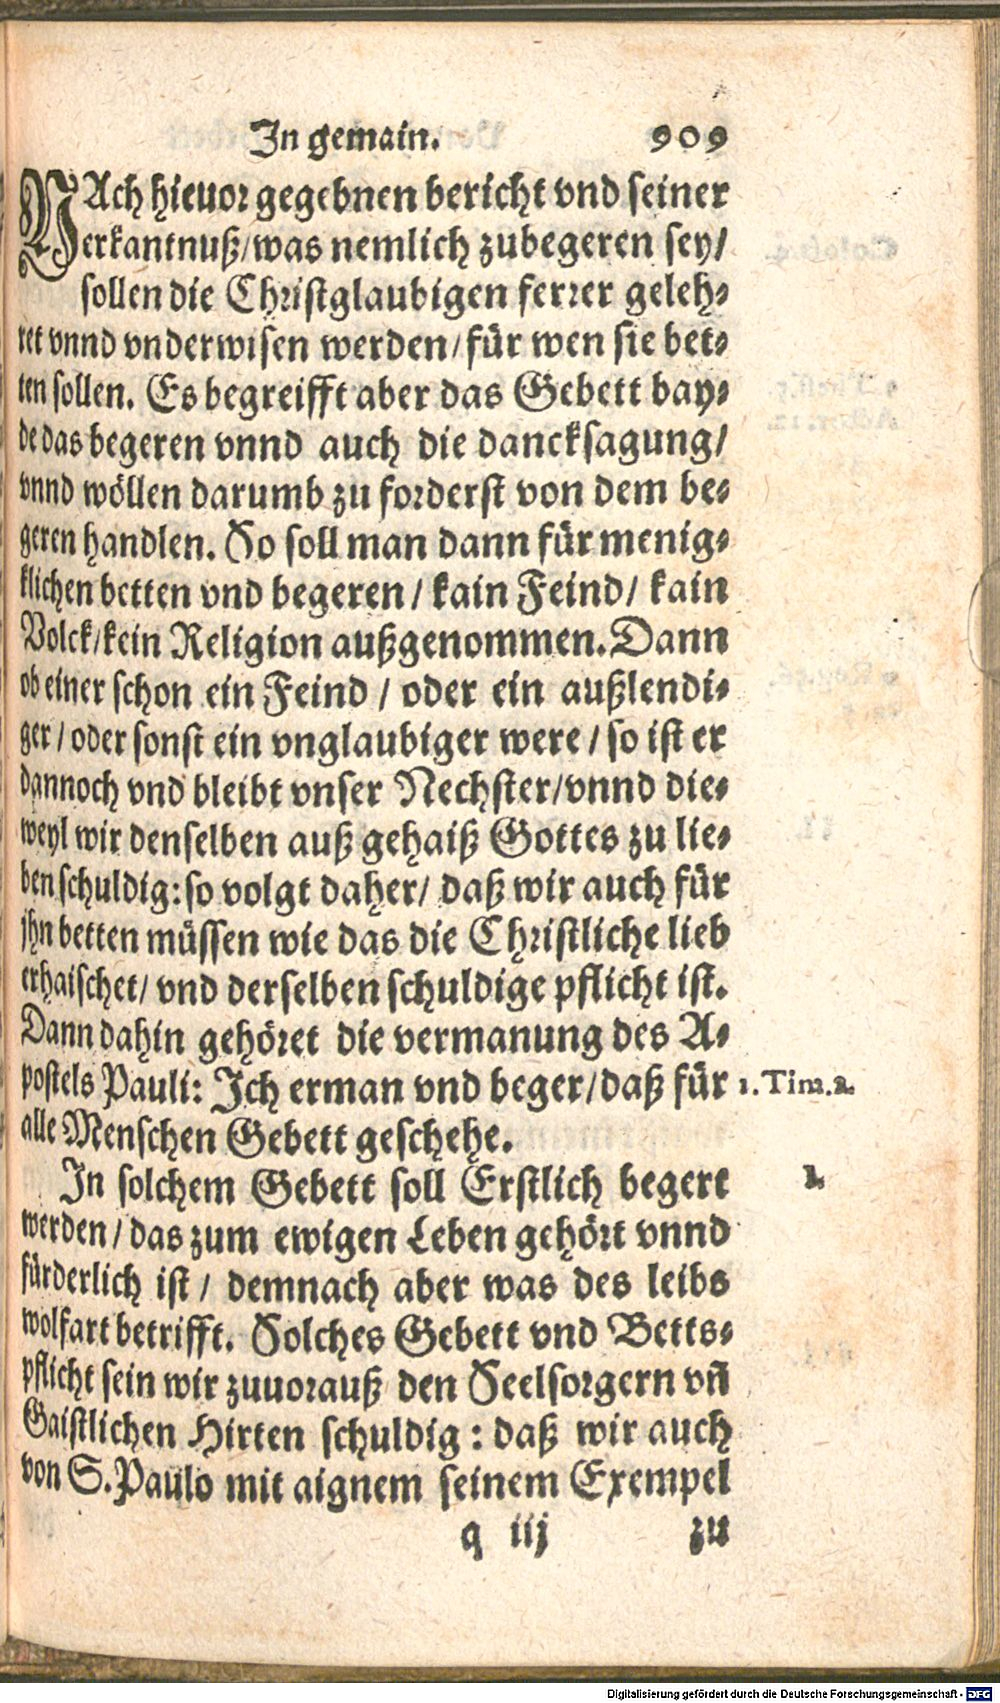 In gemain. 909
NAch hieuor gegebnen bericht vnd seiner
erkantnuß/was nemlich zubegeren sey/
sollen die Christglaubigen ferrer geleh-
ret vnnd vnderwisen werden/für wen sie bet-
ten sollen. Es begreifft aber das Gebett bay-
de das begeren vnnd auch die dancksagung/
vnnd wöllen darumb zu forderst von dem be-
geren handlen. So soll man dann für menig-
klichen betten vnd begeren/ kain Feind/ kain
Volck/kein Religion außgenommen. Dann
ob einer schon ein Feind / oder ein außlendi-
ger / oder sonst ein vnglaubiger were / so ist er
dannoch vnd bleibt vnser Nechster/vnnd die-
weyl wir denselben auß gehaiß Gottes zu lie-
ben schuldig: so volgt daher/ daß wir auch für
jhn betten müssen wie das die Christliche lieb
erhaischet/ vnd derselben schuldige pflicht ist.
Dann dahin gehöret die vermanung des A-
postels Pauli: Ich erman vnd beger/daß für 1. Tim. 2.
alle Menschen Gebett geschehe.
In solchem Gebett soll Erstlich begert 1.
werden / das zum ewigen Leben gehört vnnd
fürderlich ist / demnach aber was des leibs
wolfart betrifft. Solches Gebett vnd Betts-
pflicht sein wir zuuorauß den Seelsorgern vn̄
Gaistlichen Hirten schuldig : daß wir auch
von S. Paulo mit aignem seinem Exempel
q iij zu
Digitalisierung gefördert durch die Deutsche Forschungsgemeinschaft - DFG